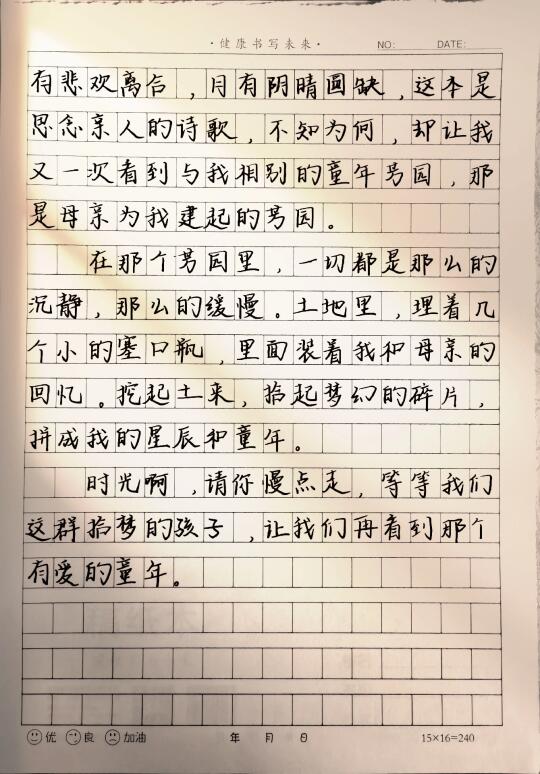 ·健康书写未来·
NO: DATE:
有悲欢离合，月有阴晴圆缺，这本是
思念亲人的诗歌，不知为何，却让我
又一次看到与我相别的童年园，那
是母亲为我建起的园。
在那个园里，一切都是那么的
沉静，那么的缓慢。土地里，埋着几
个小的塞口瓶，里面装着我和母亲的
回忆。挖起土来，拾起梦幻的碎片，
拼成我的星辰和童年。
时光啊，请你慢点走，等等我们
这群拾梦的孩子，让我们再看到那个
有爱的童年。
优 良 加油 年 月 日 15×16=240